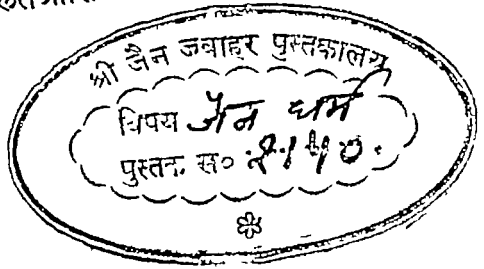 श्री जैन जवाहर पुस्तकालय
विषय जैन धर्म
पुस्तक स०